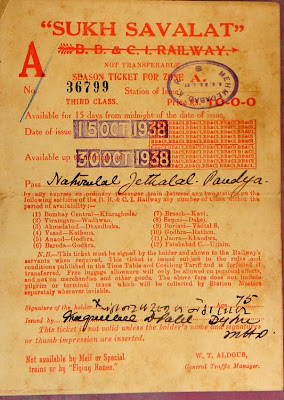 "SUKH SAVALAT"
A B. B. & C. I. RAILWAY.
NOT TRANSFERABLE
SEASON TICKET FOR ZONE A.
No. 36799 Station of
THIRD CLASS. Price 10-0-0
Available for 15 days from midnight of the date of issue.
Date of issue 15 OCT 1938
Available up to 30 OCT 1938
Pass Natverlal Jethalal Pandya
by any express or ordinary passenger train between any two stations on the
following sections of the B. B. & C. I. Railway any number of times within the
period of availability:—
(1) Bombay Central—Kharaghoda.
(2) Viramgam—Wadhwan.
(3) Ahmedabad—Dhandhuka.
(4) Vasad—Kathana.
(5) Anand—Godhra.
(6) Baroda—Godhra.
(7) Broach—Kavi.
(8)
(9)
(10) Godhra—Rutlam.
(11) Jaora—Khandwa.
(12) Fatehabad C.—Ujjain.
N.B.—This ticket must be signed by the holder and shown to the Railway's
servants when required. This ticket is issued subject to the rules and
conditions published in the Time Tables and Tariff and is forfeited if
transferred. Free luggage allowance will only be allowed on personal effects,
and not on merchandise and other goods. The above fare does not include
pilgrim or terminal taxes which will be collected by Station Masters
separately wherever leviable.
Signature of the holder
Issued by
This ticket is not valid unless the holder's name and signatures
or thumb impression are inserted.
Not available by Mail or Special
trains or by "Flying Ranee."
W. T. ALDOUS,
General Traffic Manager.